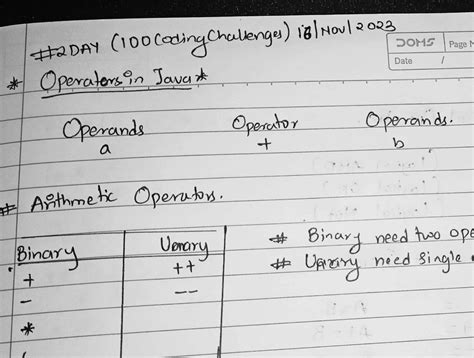 #2DAY (100CodingChallenges) 18/Nov/2023
DOMS Page N
Date /
* Operators in Java *
Operands Operator Operands.
a + b
# Arithmetic Operators.
Binary Uenary # Binary need two ope
+ ++ # Uenary need single
- --
*